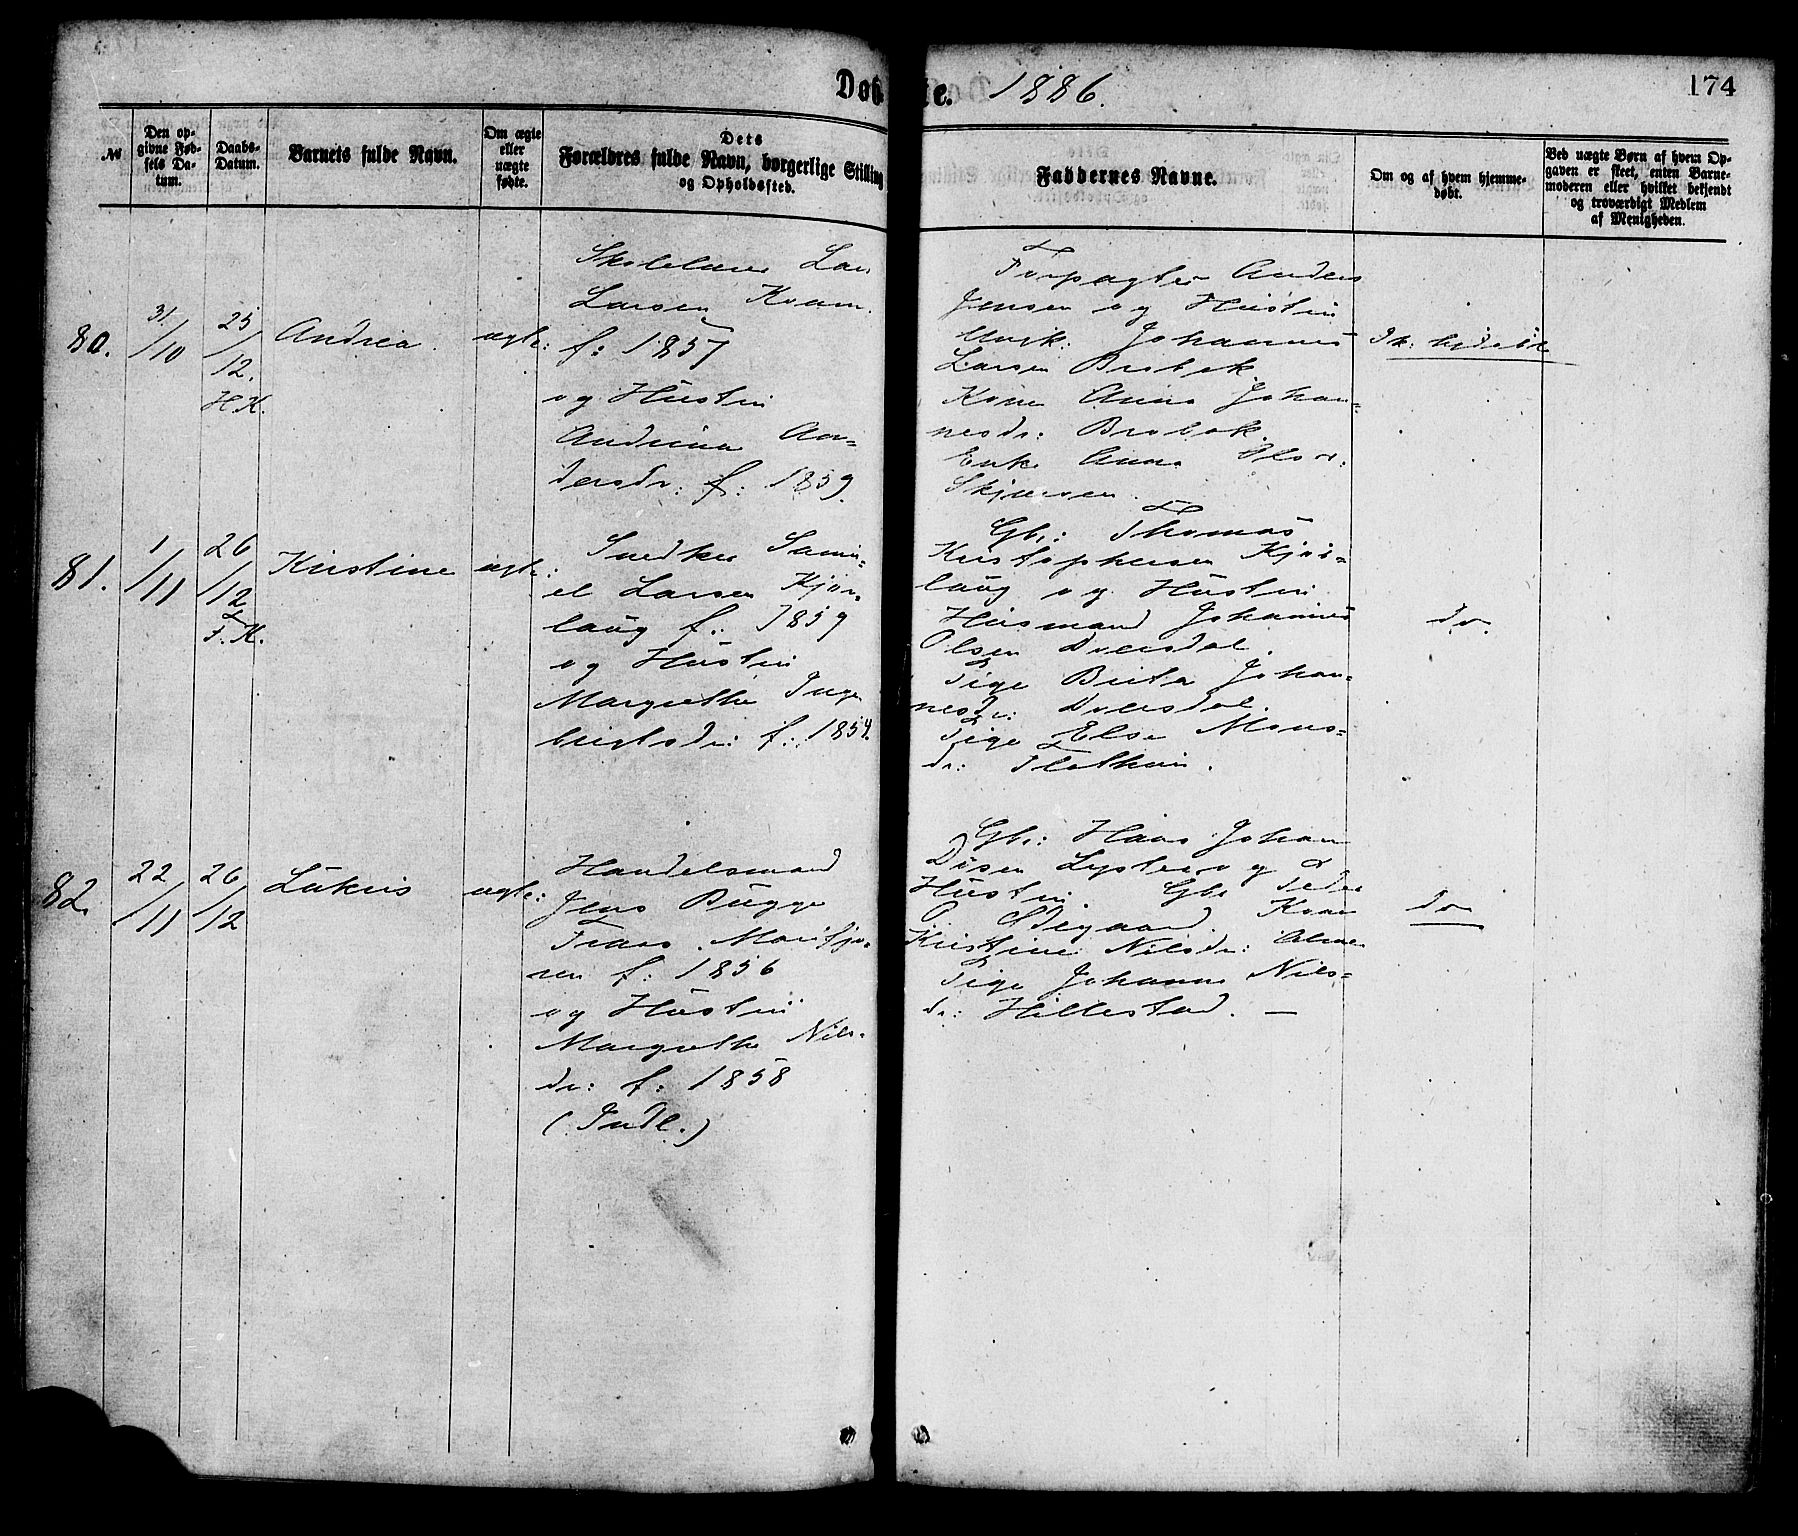 Døb
te. 1886.
174
№
Den op-
givne Fød-
sels Da-
tum.
Daabs-
Datum.
Barnets fulde Navn.
Om ægte
eller
uægte
fødte.
Dets
Forældres fulde Navn, borgerlige Stilling
og Opholdssted.
Faddernes Navne.
Om og af hvem hjemme-
døbt.
Ved uægte Børn af hvem Op-
gaven er skeet, enten Barne-
moderen eller hvilket bekjendt
og troværdigt Medlem
af Menigheden.
80.
31/10
25/12.
H.K.
Andrea.
ægte:
Skolelærer Lars
Larsen Kvam.
f: 1857
og Hustru
Andrina An-
dersdr: f: 1859.
Forpagter Anders
Jensen og Hustru
Ungk: Johannes
Larsen Brobak
Kone Anna Johan-
nesdr: Brobak.
Enke Anna
Skjærsen.
81.
1/11
26/12
F.K.
Kirstine
ægte:
Snedker Samu-
el Larsen Kjør-
laug f: 1859
og Hustru
Margrethe Inge
brigtsdr: f: 1854.
Gbr: Thomas
Kristophersen Kjør-
laug og Hustru
Husmand Johannes
Olsen Dversdal.
Pige Brita Johan-
nesdr: Dversdal.
Pige Else Mons-
dr: Flethein.
do.
82.
22/11
26/12
Lukris
ægte:
Handelsmand
Jens Bugge
Frans. Morifjø-
ren f: 1856
og Hustru
Margrethe Nils-
dr: f: 1858
(Indl.)
Gbr: Hans Johan
Døsen Lyster og
Hustru. Gbr Peder
O. Ødegaard. Kone
Kristine Nilsdr:
Pige Johanne Nils-
dr: Hillestad. —
do